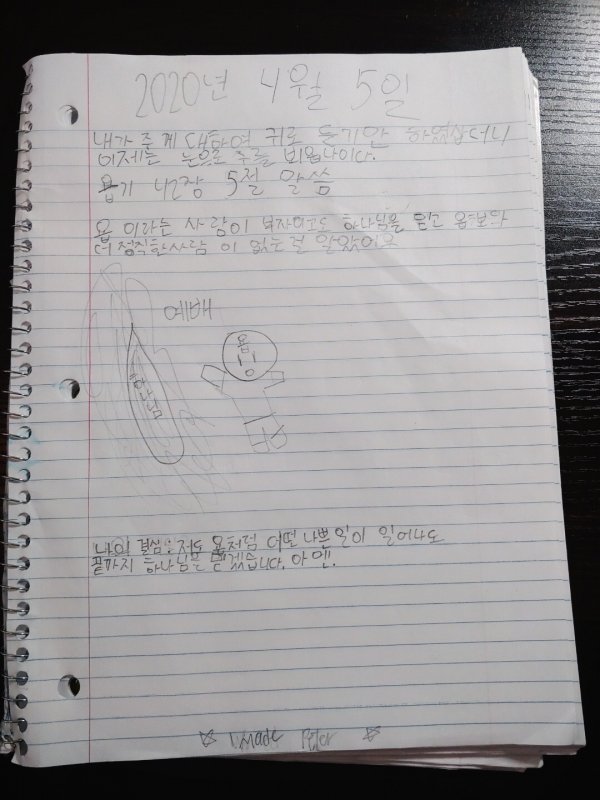 2020년 4월 5일
내가 주께 대하여 귀로 듣기만 하였삽더니
이제는 눈으로 주를 뵈옵나이다.
욥기 42장 5절 말씀
욥 이라는 사람이 부자라고도 하나님을 믿고 욥보다
더 정직한사람 이 없는걸 알았어요
예배
하나님
욥
나의 결심: 저도 욥처럼 어떤 나쁜일이 일어나도
끝까지 하나님을 믿겠습니다. 아멘.
made Peter